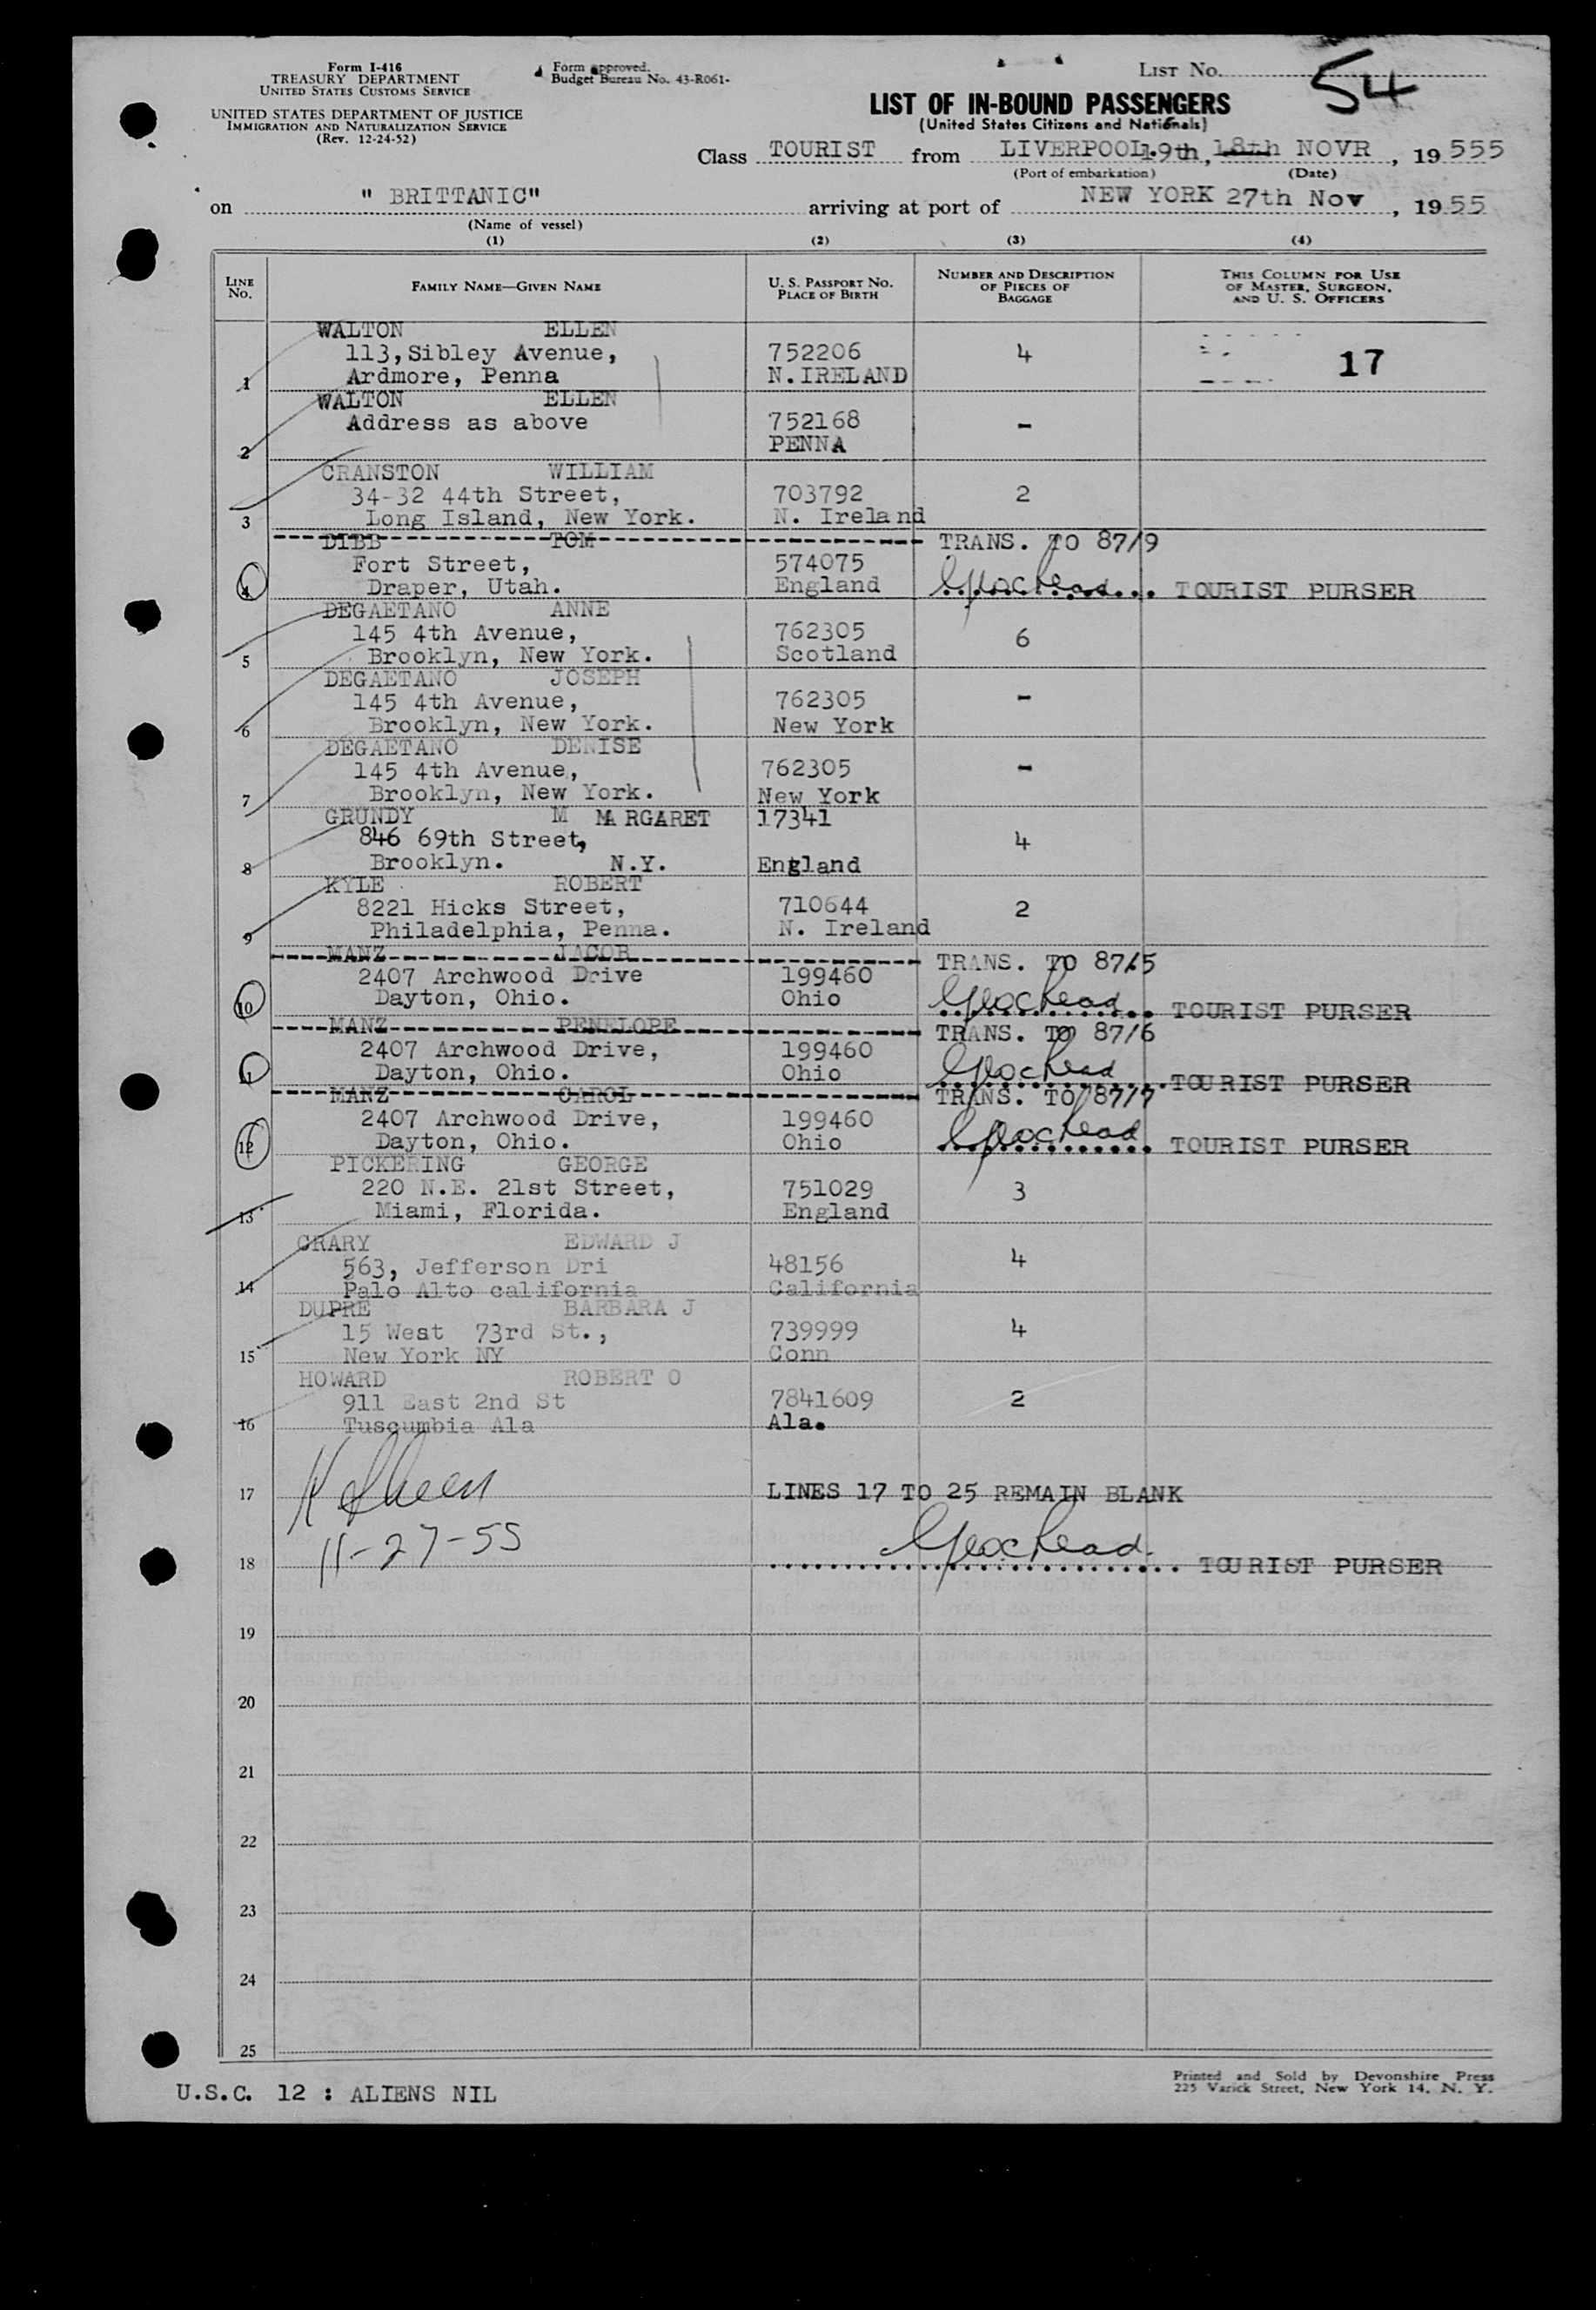 Form I-416
TREASURY DEPARTMENT
UNITED STATES CUSTOMS SERVICE
UNITED STATES DEPARTMENT OF JUSTICE
IMMIGRATION AND NATURALIZATION SERVICE
(Rev. 12-24-52)
Form approved.
Budget Bureau No. 43-R061-
LIST NO. 54
LIST OF IN-BOUND PASSENGERS
(United States Citizens and Nationals)
Class TOURIST from LIVERPOOL. 19th, 18th NOVR, 19 555
(Port of embarkation) (Date)
on " BRITTANIC" arriving at port of NEW YORK 27th Nov, 1955
(Name of vessel)
(1) (2) (3) (4)
LINE NO. FAMILY NAME—GIVEN NAME U. S. PASSPORT NO. PLACE OF BIRTH NUMBER AND DESCRIPTION OF PIECES OF BAGGAGE THIS COLUMN FOR USE OF MASTER, SURGEON, AND U. S. OFFICERS
WALTON ELLEN
113, Sibley Avenue, 752206 4 17
1 Ardmore, Penna N.IRELAND
WALTON ELLEN
Address as above 752168 -
2 PENNA
CRANSTON WILLIAM
34-32 44th Street, 703792 2
3 Long Island, New York. N. Ireland
DIBB TOM TRANS. TO 87/9
Fort Street, 574075
4 Draper, Utah. England TOURIST PURSER
DEGAETANO ANNE
145 4th Avenue, 762305 6
5 Brooklyn, New York. Scotland
DEGAETANO JOSEPH
145 4th Avenue, 762305 -
6 Brooklyn, New York. New York
DEGAETANO DENISE
145 4th Avenue, 762305 -
7 Brooklyn, New York. New York
GRUNDY M MARGARET 17341
846 69th Street, 4
8 Brooklyn. N.Y. England
KYLE ROBERT
8221 Hicks Street, 710644 2
9 Philadelphia, Penna. N. Ireland
MANZ JACOB TRANS. TO 87/5
2407 Archwood Drive 199460
10 Dayton, Ohio. Ohio TOURIST PURSER
MANZ PENELOPE TRANS. TO 87/6
2407 Archwood Drive, 199460
11 Dayton, Ohio. Ohio TOURIST PURSER
MANZ CAROL TRANS. TO 87/7
2407 Archwood Drive, 199460
12 Dayton, Ohio. Ohio TOURIST PURSER
PICKERING GEORGE
220 N.E. 21st Street, 751029 3
13 Miami, Florida. England
CRARY EDWARD J
563, Jefferson Dri 48156 4
14 Palo Alto california California
DUPRE BARBARA J
15 West 73rd St., 739999 4
15 New York NY Conn
HOWARD ROBERT O
911 East 2nd St 7841609 2
16 Tuscumbia Ala Ala.
17 LINES 17 TO 25 REMAIN BLANK
11-27-55
18 TOURIST PURSER
19
20
21
22
23
24
25
U.S.C. 12 : ALIENS NIL
Printed and Sold by Devonshire Press
225 Varick Street, New York 14, N. Y.